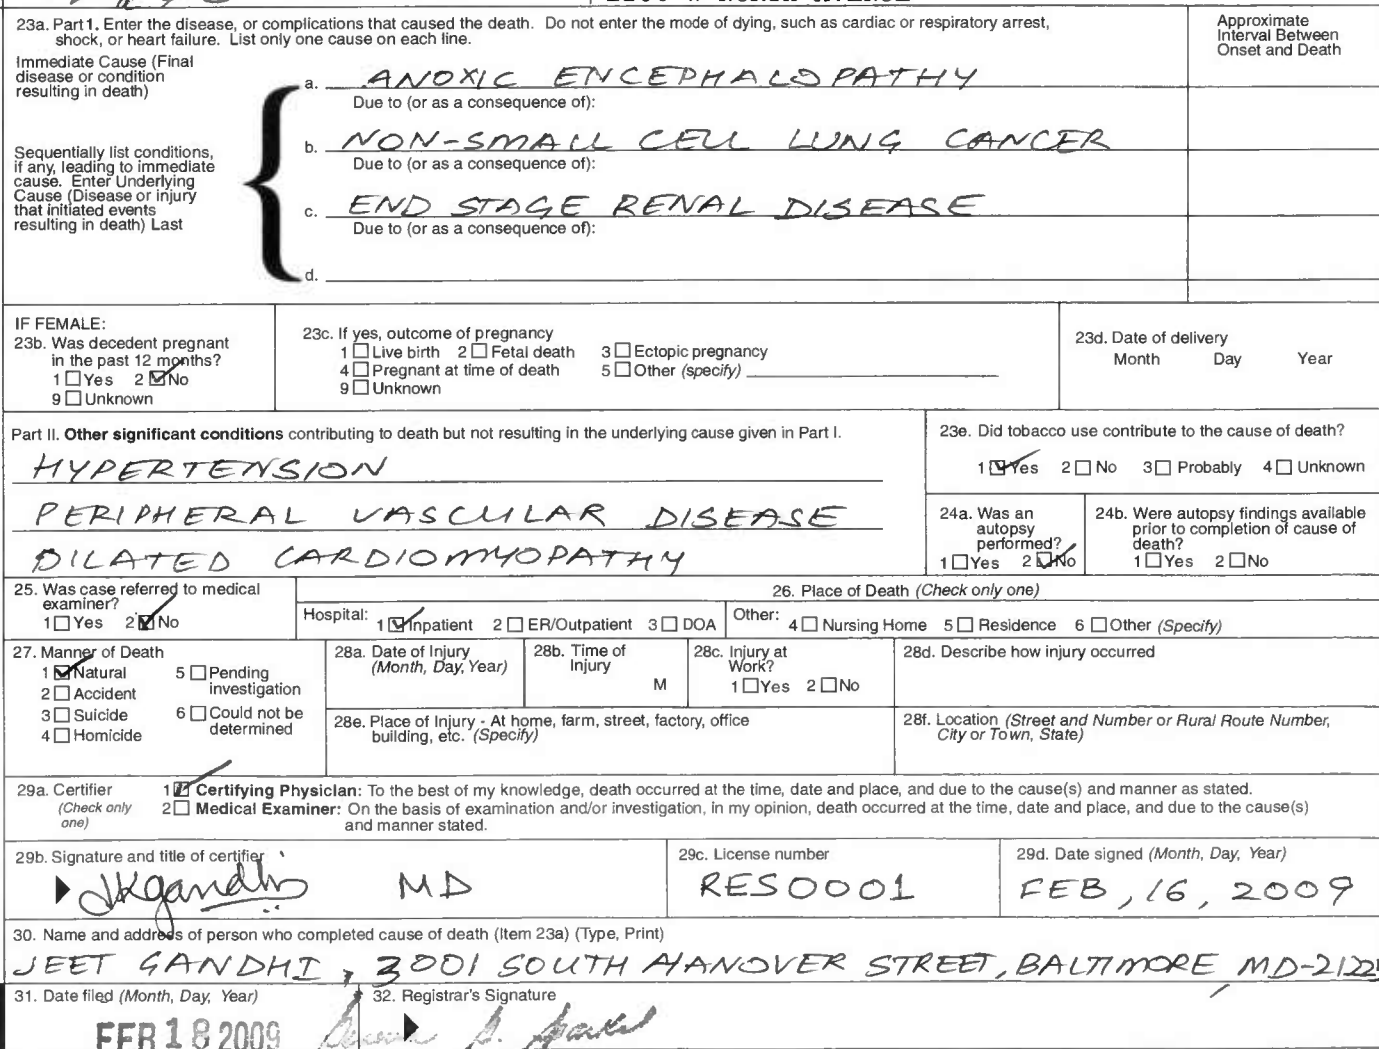 23a. Part 1. Enter the disease, or complications that caused the death. Do not enter the mode of dying, such as cardiac or respiratory arrest,
shock, or heart failure. List only one cause on each line.
Approximate
Interval Between
Onset and Death
Immediate Cause (Final
disease or condition
resulting in death)
a. ANOXIC ENCEPHALOPATHY
Due to (or as a consequence of):
b. NON-SMALL CELL LUNG CANCER
Due to (or as a consequence of):
Sequentially list conditions,
if any, leading to immediate
cause. Enter Underlying
Cause (Disease or injury
that initiated events
resulting in death) Last
c. END STAGE RENAL DISEASE
Due to (or as a consequence of):
d.
IF FEMALE:
23b. Was decedent pregnant
in the past 12 months?
1 ☐ Yes 2 ☑ No
9 ☐ Unknown
23c. If yes, outcome of pregnancy
1 ☐ Live birth 2 ☐ Fetal death 3 ☐ Ectopic pregnancy
4 ☐ Pregnant at time of death 5 ☐ Other (specify)
9 ☐ Unknown
23d. Date of delivery
Month Day Year
Part II. Other significant conditions contributing to death but not resulting in the underlying cause given in Part I.
HYPERTENSION
PERIPHERAL VASCULAR DISEASE
DILATED CARDIOMYOPATHY
23e. Did tobacco use contribute to the cause of death?
1 ☑ Yes 2 ☐ No 3 ☐ Probably 4 ☐ Unknown
24a. Was an
autopsy
performed?
1 ☐ Yes 2 ☑ No
24b. Were autopsy findings available
prior to completion of cause of
death?
1 ☐ Yes 2 ☐ No
25. Was case referred to medical
examiner?
1 ☐ Yes 2 ☑ No
26. Place of Death (Check only one)
Hospital: 1 ☑ Inpatient 2 ☐ ER/Outpatient 3 ☐ DOA Other: 4 ☐ Nursing Home 5 ☐ Residence 6 ☐ Other (Specify)
27. Manner of Death
1 ☑ Natural 5 ☐ Pending
investigation
2 ☐ Accident
3 ☐ Suicide 6 ☐ Could not be
determined
4 ☐ Homicide
28a. Date of Injury
(Month, Day, Year)
28b. Time of
Injury
M
28c. Injury at
Work?
1 ☐ Yes 2 ☐ No
28d. Describe how injury occurred
28e. Place of Injury - At home, farm, street, factory, office
building, etc. (Specify)
28f. Location (Street and Number or Rural Route Number,
City or Town, State)
29a. Certifier
(Check only
one)
1 ☑ Certifying Physician: To the best of my knowledge, death occurred at the time, date and place, and due to the cause(s) and manner as stated.
2 ☐ Medical Examiner: On the basis of examination and/or investigation, in my opinion, death occurred at the time, date and place, and due to the cause(s)
and manner stated.
29b. Signature and title of certifier
JKgandhi MD
29c. License number
RES0001
29d. Date signed (Month, Day, Year)
FEB, 16, 2009
30. Name and address of person who completed cause of death (Item 23a) (Type, Print)
JEET GANDHI, 3001 SOUTH HANOVER STREET, BALTIMORE MD-21225
31. Date filed (Month, Day, Year)
FEB 18 2009
32. Registrar's Signature